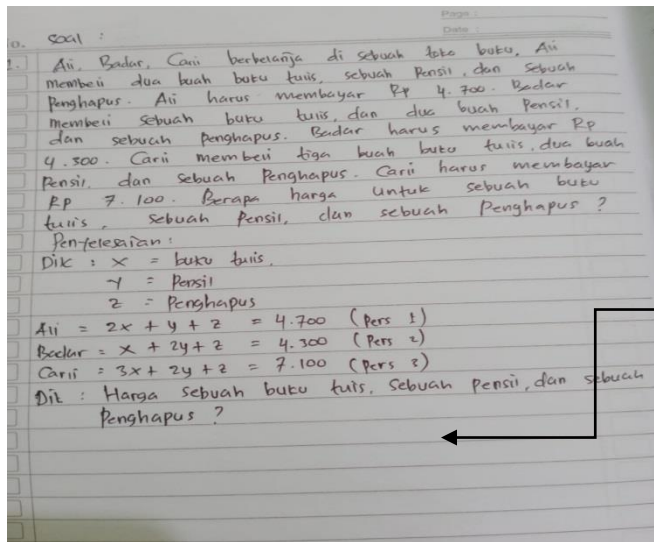 Page :
Date :
o. Soal :
1. Ali, Badar, Carli berbelanja di sebuah toko buku, Ali
membeli dua buah buku tulis, sebuah Pensil, dan sebuah
Penghapus. Ali harus membayar Rp 4.700. Badar
membeli sebuah buku tulis, dan dua buah Pensil,
dan sebuah Penghapus. Badar harus membayar Rp
4.300. Carli membeli tiga buah buku tulis, dua buah
Pensil, dan sebuah Penghapus. Carli harus membayar
RP 7.100. Berapa harga untuk sebuah buku
tulis, sebuah Pensil, dan sebuah Penghapus ?
Penyelesaian :
Dik : x = buku tulis.
y = Pensil
z = Penghapus
Ali = 2x + y + z = 4.700 (Pers 1)
Badar = x + 2y + z = 4.300 (Pers 2)
Carli = 3x + 2y + z = 7.100 (Pers 3)
Dit : Harga sebuah buku tulis, sebuah pensil, dan sebuah
Penghapus ?